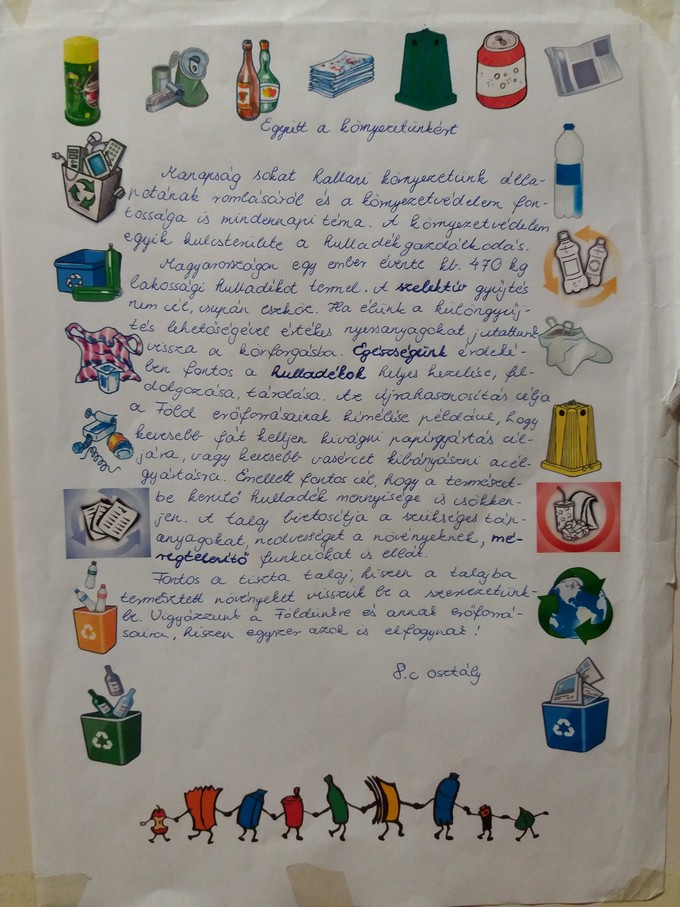 Együtt a környezetünkért
Manapság sokat hallani környezetünk álla-
potának romlásáról és a környezetvédelem fon-
tossága is mindennapi téma. A környezetvédelem
egyik kulcsterülete a hulladékgazdálkodás.
Magyarországon egy ember évente kb. 470 kg
lakossági hulladékot termel. A szelektív gyűjtés
nem cél, csupán eszköz. Ha élünk a különgyűj-
tés lehetőségével értékes nyersanyagokat juttatunk
vissza a körforgásba. Egészségünk érdeké-
ben fontos a hulladékok helyes kezelése, fel-
dolgozása, tárolása. Az újrahasznosítás célja
a Föld erőforrásainak kímélése például, hogy
kevesebb fát kelljen kivágni papírgyártás cél-
jára, vagy kevesebb vasércet kibányászni acél-
gyártásra. Emellett fontos cél, hogy a természet-
be kerülő hulladék mennyisége is csökken-
jen. A talaj biztosítja a szükséges táp-
anyagokat, nedvességet a növényeknek, mé-
regtelenítő funkciókat is ellát.
Fontos a tiszta talaj, hiszen a talajba
termesztett növényeket visszük be a szervezetünk-
be. Vigyázzunk a Földünkre és annak erőforrá-
saira, hiszen egyszer azok is elfogynak!
8.c osztály